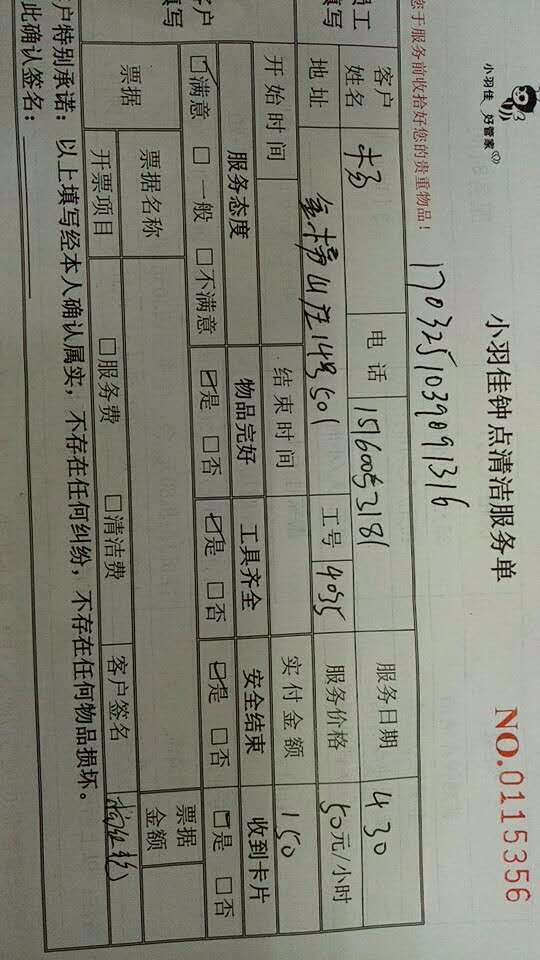 小羽佳 好管家
小羽佳钟点清洁服务单
NO.0115356
您于服务前收拾好您的贵重物品！
1703251039091316
员工填写
客户姓名 电话 服务日期 430
地址 工号 4035 服务价格 50元/小时
开始时间 结束时间 实付金额 150
客户填写
服务态度 物品完好 工具齐全 安全结束 收到卡片
☑满意 □一般 □不满意 ☑是 □否 ☑是 □否 ☑是 □否 ☑是 □否
票据 票据名称 票据金额
开票项目 □服务费 □清洁费 客户签名
户特别承诺：以上填写经本人确认属实，不存在任何纠纷，不存在任何物品损坏。
此确认签名：